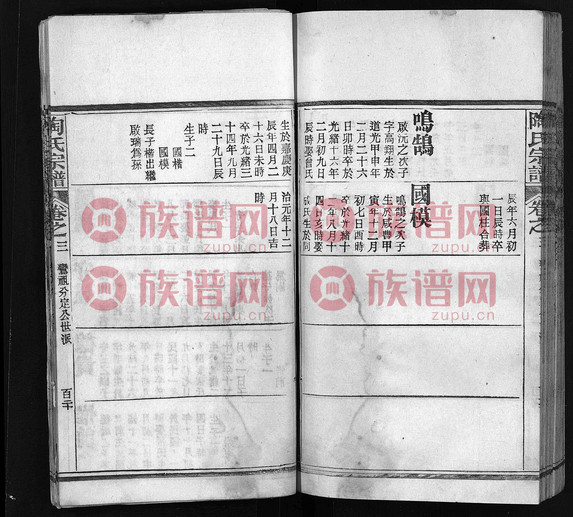 陶氏宗譜
卷之三
辰年六月初
一日辰時卒
與國柱合葬
鳴鵠
國模
啟沅之次子
字高翔生於
道光甲申年
二月二十六
日卯時卒於
光緒十六年
二月初九日
辰時娶曾氏
鳴鵠之次子
生於咸豐甲
寅年二月
初七日酉時
卒於光緒十
年八月十
四日亥時娶
氏生於同
生於嘉慶庚
辰年四月二
十六日未時
卒於光緒三
十四年九月
二十九日辰
時
生子二
國楷
國模
長子楷出繼
啟瑞為孫
治元年十二
月十八日吉
時
陶氏宗譜
卷之三
鸞祖分定公世派
百二十
族谱网
zupu.cn
族谱网
zupu.cn
族谱网
zupu.cn
族谱网
zupu.cn